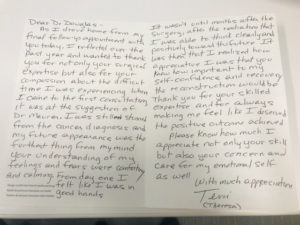 Dear Dr Douglas -
As I drove home from my
final follow up appointment with
you today, I reflected over the
past year and wanted to thank
you for not only your surgical
expertise but also for your
compassion about the difficult
time I was experiencing. When
I came to the first consultation
it was at the suggestion of
Dr Meuren. I was still stunned
from the cancer diagnosis and
my future appearance was the
furthest thing from my mind
your understanding of my
feelings and fears were comforting
and calming. From day one I
felt like I was in
good hands
It wasn't until months after the
surgery, after the radiation that
I was able to think clearly and
positively toward the future. It
was then that I realized how
imperative it was that you
knew how important to my
self-confidence and receiving
the reconstruction would be.
Thank you for your skilled
expertise and for always
making me feel like I deserved
the positive outcome achieved
Please know how much I
appreciate not only your skill
but also your concern and
care for my emotional self
as well
With much appreciation
Terri